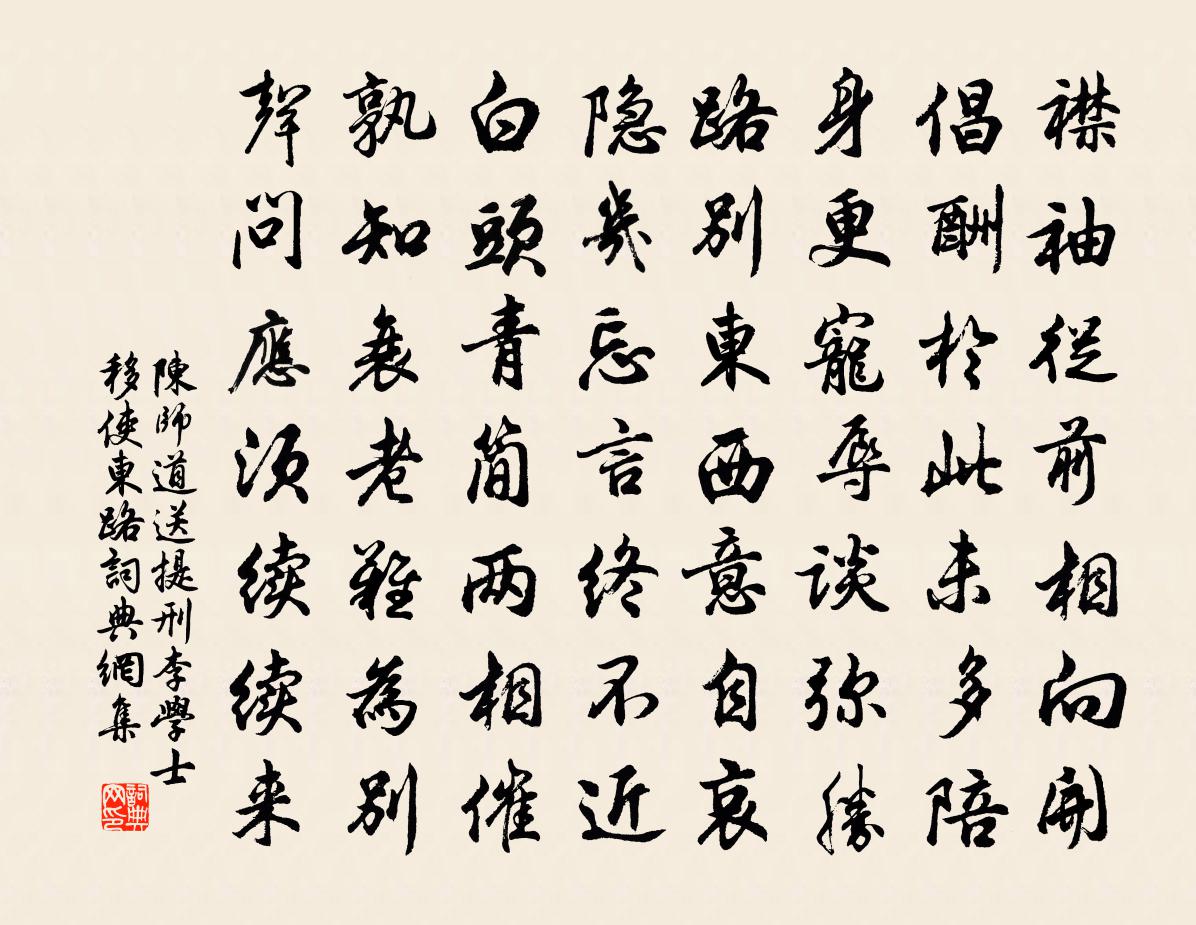 襟袖從前相向開
倡酬於此未多陪
身更寵辱談弥勝
路別東西意自哀
隐幾忘言終不近
白頭青简两相催
孰知衰老難為別
聲問應須續續来
陳師道送提刑李學士
移使東路詞典網集
詞典网印